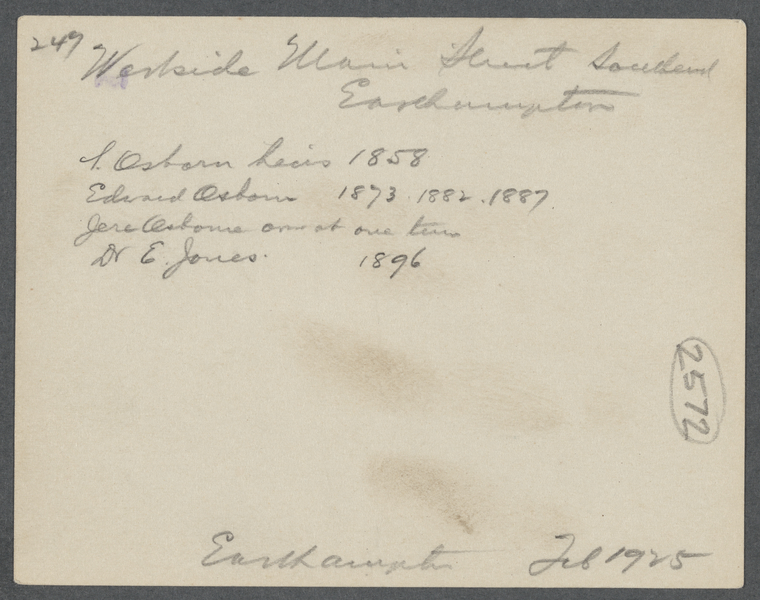 247
Westside Main Street Southend
Easthampton
S. Osborn heirs 1858
Edward Osborn 1873. 1882. 1887.
Jere Osborne at one time
Dr E. Jones. 1896
2572
Easthampton Feb 1925